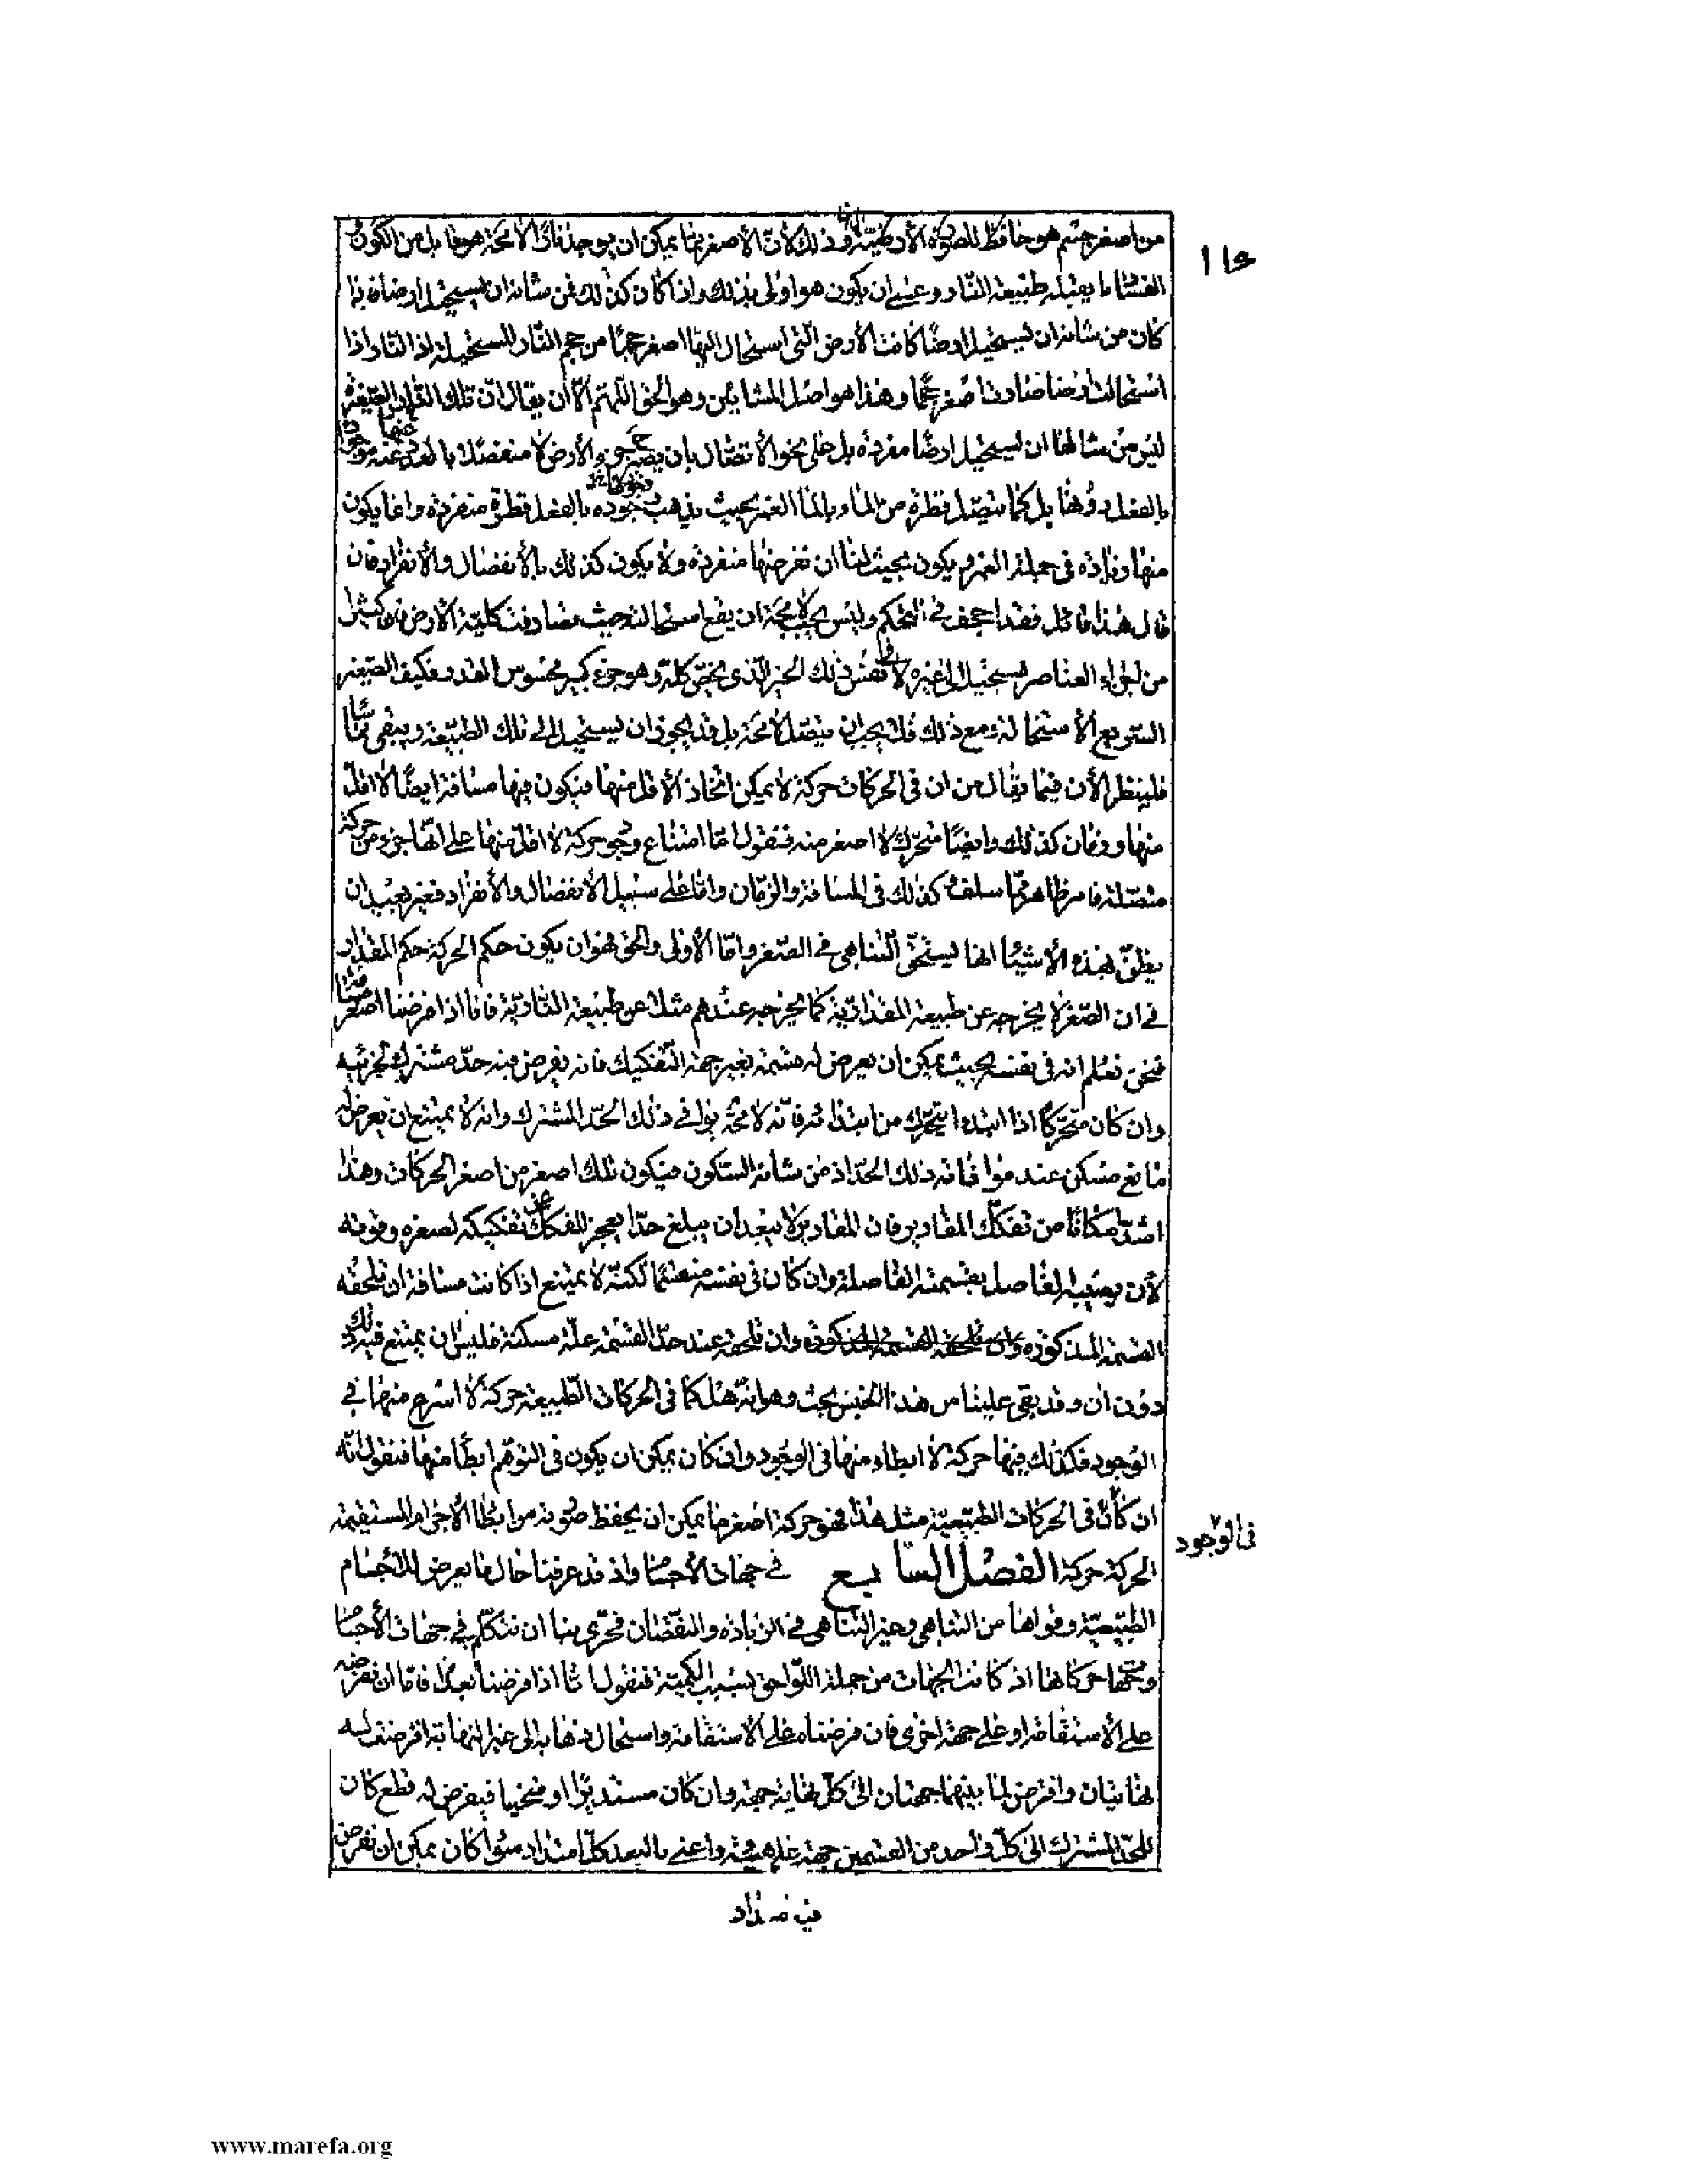 من اصغر جسم هو حافظ للصورة الأرضية وذلك لأن الأصغر مما يمكن ان يوجد نارًا لا محة هو قابل من الكون و
الفساد ما يقبله طبيعة النار وعسى ان يكون هو اولى بذلك واذا كان كذلك فمن شانه ان يستحيل ارضا فاذا
كان من شانه ان يستحيل ارضًا كانت الأرض التى استحال اليها اصغر حجمًا من حجم النار المستحيلة اذ النار اذا
استحالت ارضا صارت اصغر حجمًا وهذا هو اصل المشائين وهو الحق اللهم الّا ان يقال ان تلك النار الصغيرة
ليس من شانها ان يستحيل ارضًا مفردة بل على نحو الأتصال بان يصير جزو الأرض لا منفصلا بالعدد عنه موجودا
بالفعل دونها بل كما يتصل قطرة من الماء بالماء الغمر بحيث يذهب وجوده بالفعل قطرة منفردة وانما يكون
منها زيادة فى جملة الغمر ويكون بحيث لنا ان نفرضها منفردة ولا يكون كذلك بالأنفصال والأنفراد فان
قال هذا قائل فقد اجحف فى التحكم وليس يجب لا محة ان يقع استحالته حيث يصادف كلية الأرض فان كثيرا
من اجزاء العناصر يستحيل الى غيره لا فى نفس ذلك الحيز الذى يخص كله وهو جزء كبير محسوس القدر فكيف الصغير
السريع الأستحالة ومع ذلك فلا يجب ان يتصل لا محة بل قد يجوز ان يستحيل الى تلك الطبيعة ويبقى مماسا
فلينظر الأن فيما يقال من ان فى الحركات حركة لا يمكن اتخاذ الأقل منها فيكون فيها مسافة ايضًا لا اقل
منها وزمان كذلك وايضًا متحرك لا اصغر منه فنقول اما امتناع وجود حركة لا اقل منها على انها جزو من حركة
متصلة فامر ظاهر مما سلف كذلك فى المسافة والزمان واما على سبيل الأنفصال والأنفراد فغير بعيد ان
يظن بهذه الأشياء انها يستحق التناهى فى الصغر واما الأولى والحق فهو ان يكون حكم الحركة حكم المقدار
فى ان الصغر لا يخرجه عن طبيعة المقدارية كما يخرجه عندهم مثلا عن طبيعة النارية فانا اذا فرضنا اصغر مسافة
فنحن نعلم انه فى نفسه بحيث يمكن ان يعرض له قسمة بغير جهة التفكيك فانه يفرض فيه حدّ مشترك لجزئيه
وان كان متحركا اذا ابتدا يتحرك من ابتدائه فانه لا محة يوافى ذلك الحدّ المشترك وانه لا يمتنع ان يعرض له
مانع مسكن عند موافاته ذلك الحدّ اذ من شانه السكون فيكون تلك اصغر من اصغر الحركات وهذا
اشدّ امكانا من تفكك المقادير فان المقادير لا يبعد ان يبلغ حدّا يعجز المفكك عن تفكيكه لصغره وفوته
لأن يصيبه الفاصل بقسمته الفاصلة وان كان فى نفسه منقسمًا لكنّه لا يمتنع اذا كانت مسافة ان تلحقه
القسمة المذكورة وان تلحقه عند حدّ القسمة علّة مسكنة فليس ان يمتنع فيه ذلك
دون ان وقد بقى علينا من هذا الجنس بحث وهو انه هل كما فى الحركات الطبيعية حركة لا اسرع منها فى
الوجود فكذلك فيها حركة لا ابطا منها فى الوجود وان كان يمكن ان يكون فى التوهم ابطأ منها فنقول انه
ان كان فى الحركات الطبيعية مثل هذا فهو حركة اصغر ما يمكن ان يحفظ صورته من ابطأ الأجرام المستقيمة
فى الوجود
الحركة حركة الفصل السابع فى جهات الأجسام واذ قد عرفنا حال ما يعرض للأجسام
الطبيعية وقواها من التناهى وغير التناهى فى الزيادة والنقصان فحرى بنا ان نتكلم فى جهات الأجسام
وجهات حركاتها اذ كانت الجهات من جملة اللواحق بسبب الكمية فنقول انا اذا فرضنا بعدًا فاما ان نفرضه
على الأستقامة او على جهة اخرى فان فرضناه على الأستقامة واستحال ذهابه الى غير النهاية افترضت له
نهايتان وافترض لنا بينهما جهتان الى كل نهاية جهة وان كان مستديرًا او منحنيا فيفرض له قطع كان
للحدّ المشترك الى كل واحد من القسمين جهة على هيئة واعنى بالبعد كلّ امتداد سواء كان يمكن ان نفرض